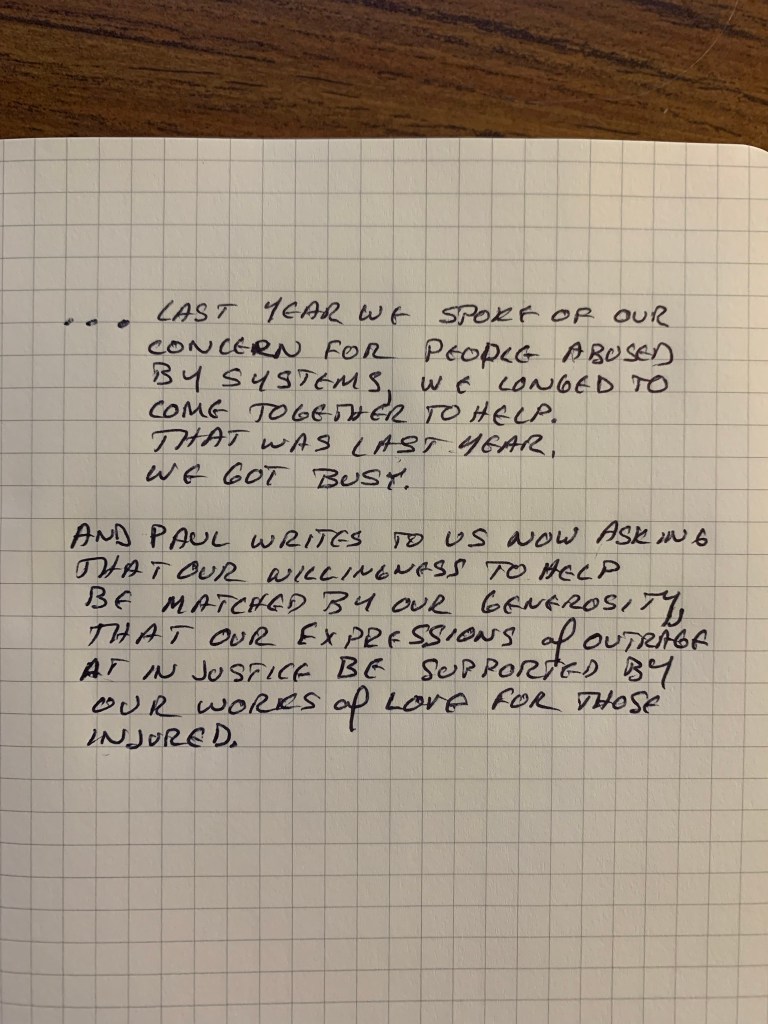 ... LAST YEAR WE SPOKE OF OUR
CONCERN FOR PEOPLE ABUSED
BY SYSTEMS, WE LONGED TO
COME TOGETHER TO HELP.
THAT WAS LAST YEAR.
WE GOT BUSY.
AND PAUL WRITES TO US NOW ASKING
THAT OUR WILLINGNESS TO HELP
BE MATCHED BY OUR GENEROSITY,
THAT OUR EXPRESSIONS of OUTRAGE
AT INJUSTICE BE SUPPORTED BY
OUR WORKS of LOVE FOR THOSE
INJURED.